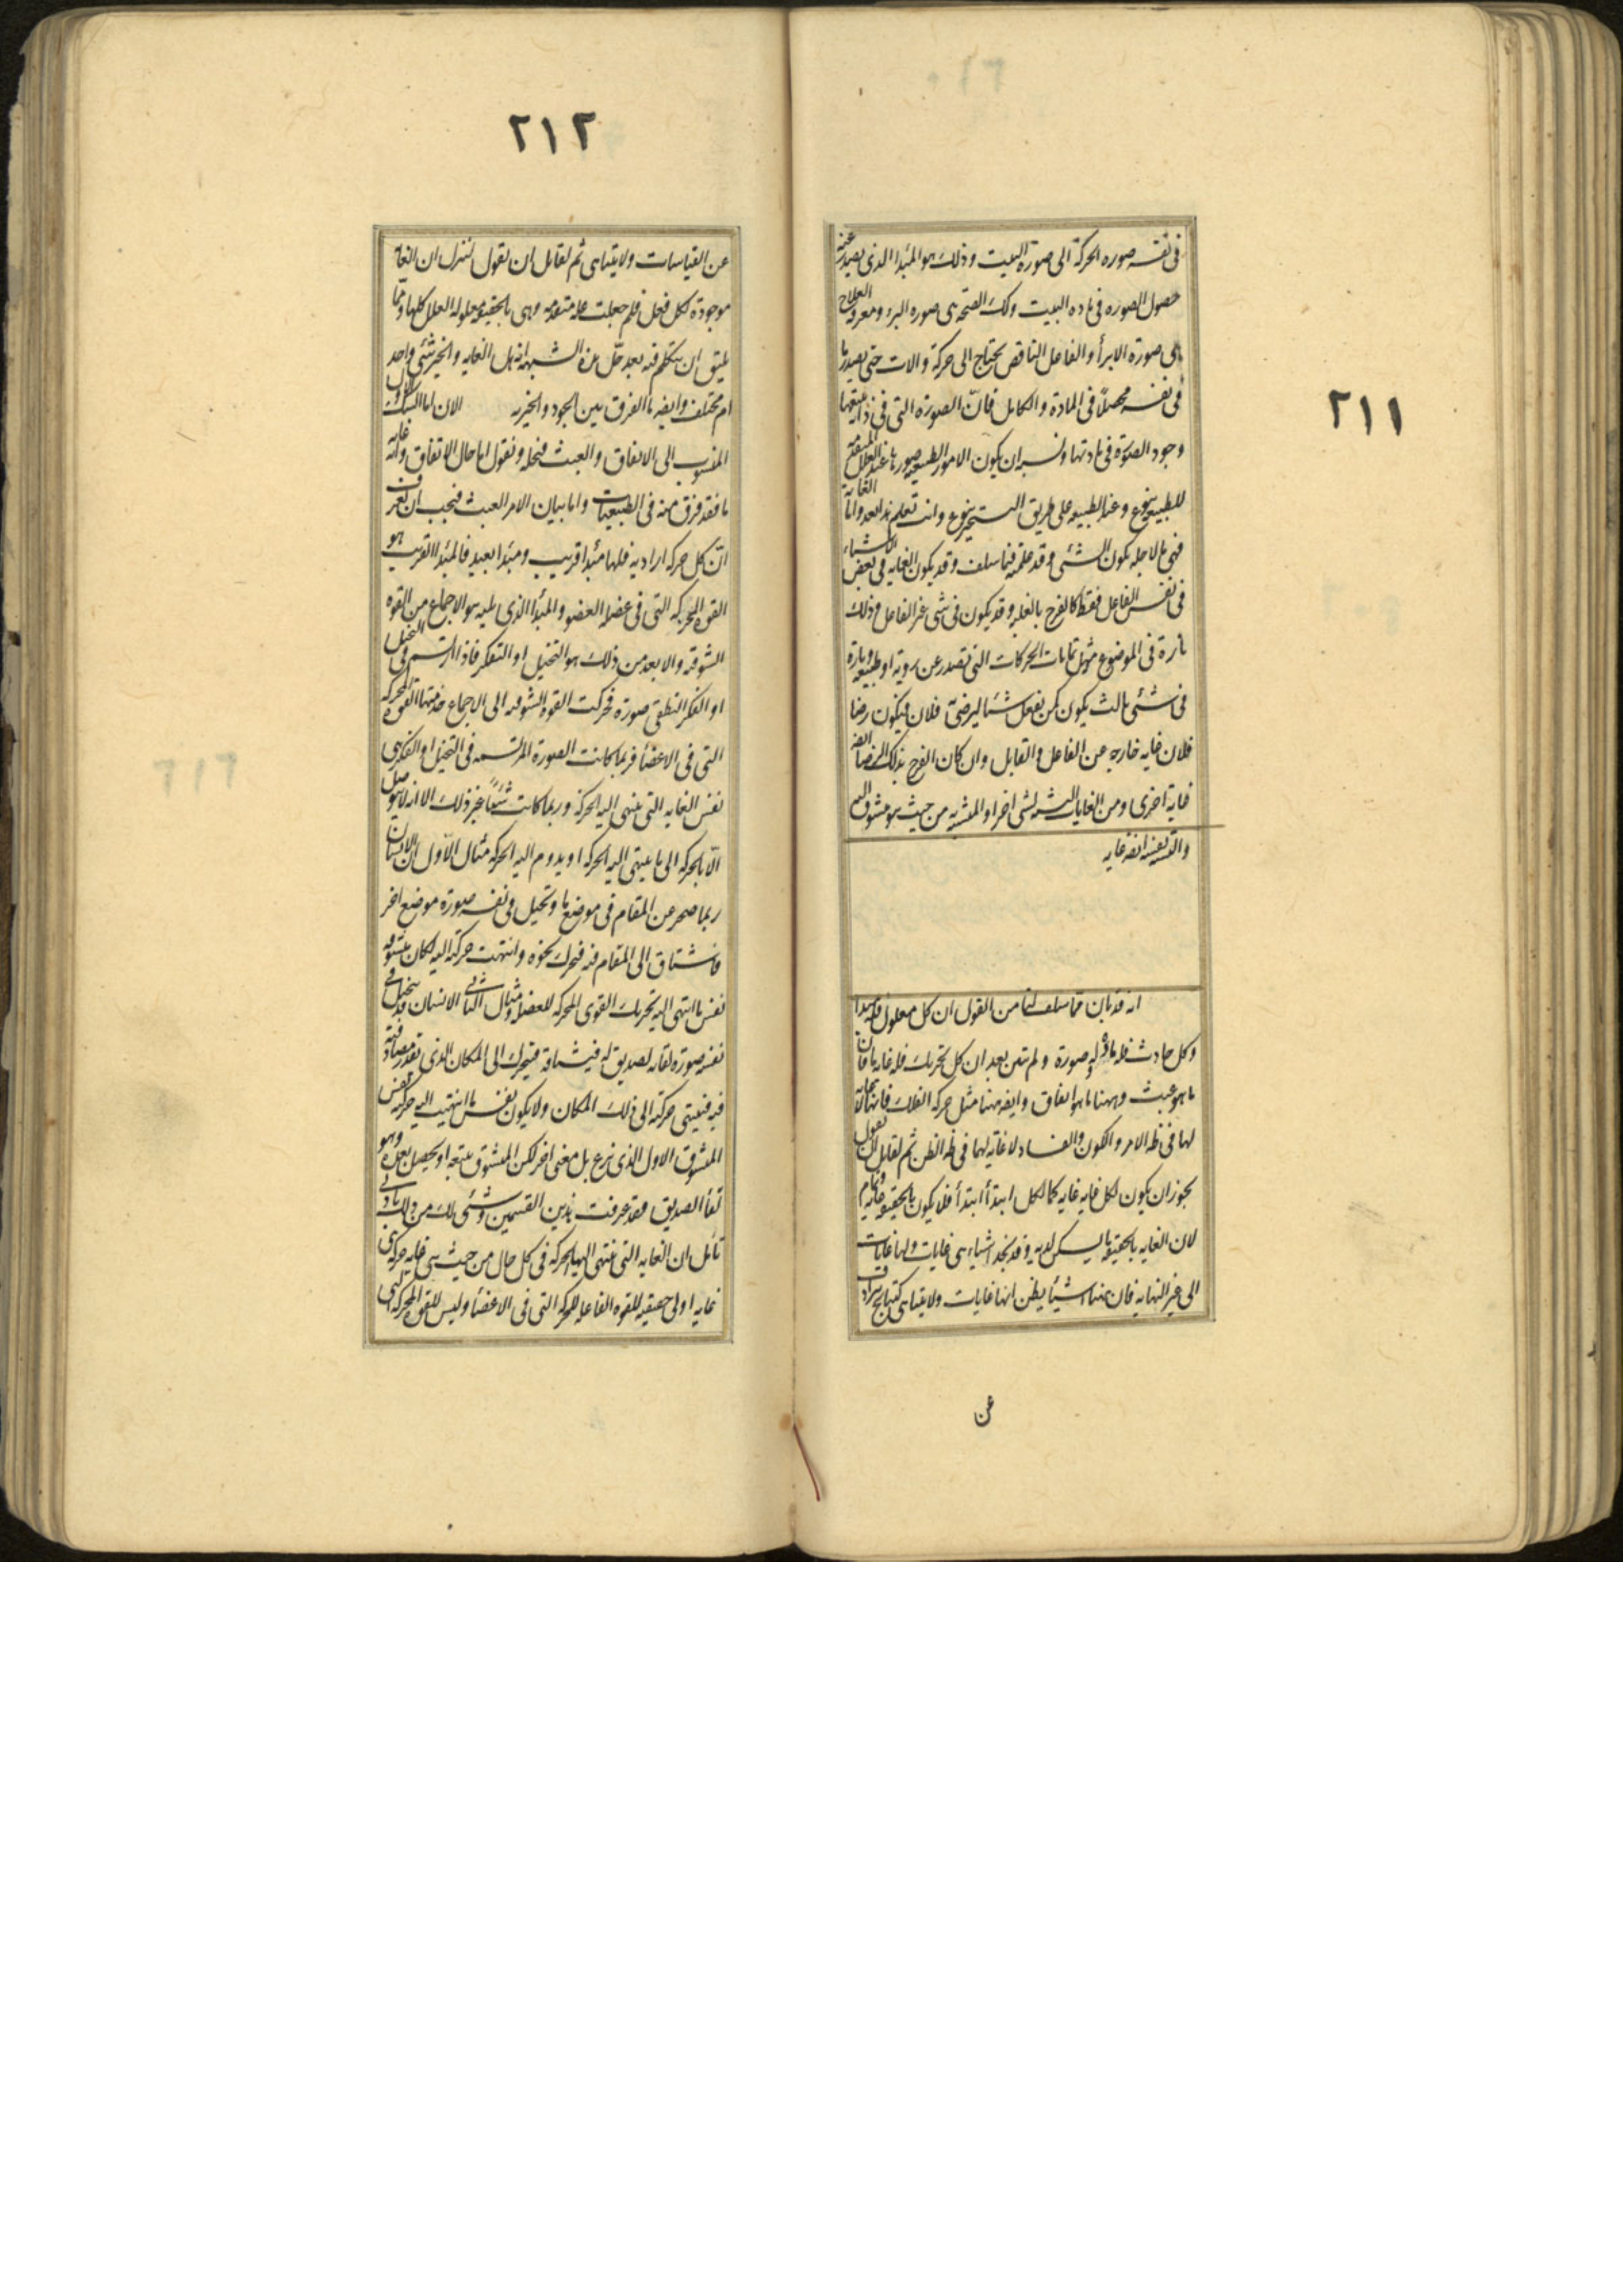 ٢١١
فی نفسه صوره الحركة الی صورة البیت وذلك هو المبدا الذی یصدر عنه
حصول الصوره فی ماده البیت وكك الصحة هی صوره البرء ومعرفه العلاج
هی صورة الابرأ والفاعل الناقص یحتاج الی حركة والات حتی یصدر ما
فی نفسه محصلاً فی المادة والكامل فانّ الصورة التی فی ذاته یتبعها
وجود الصورة فی مادتها ویشبه ان یكون الامور الطبیعیه صورها عند العلل المتقدمه
للطبیعه بنوع وعند الطبیعه علی طریق التسخیر بنوع وانت تعلم هذا بعد واما الغایه
فهی ما لاجله یكون الشئی وقد علمته فیما سلف وقد یكون الغایه فی بعض الاشیاء
فی نفس الفاعل فقط كالفرح بالغلبه وقد یكون فی شی غیر الفاعل وذلك
تارة فی الموضوع مثل غایات الحركات التی تصدر عن رویه او طبیعه وتارة
فی شئی ثالث یكون كمن یفعل شیئا لیرضی فلان فیكون رضا
فلان غایه خارجه عن الفاعل والقابل وان كان الفرح بذلك الرضا ایضه
غایة اخری ومن الغایات التشبه بشی اخر او المتشبه به من حیث هو مشوق الیه
والتشبه نفسه ایضه غایه
انه قد بان مما سلف لنا من القول ان كل معلول فله مبدا
وكل حادث فله مادة وله صورة ولم یتبین بعد ان كل تحریك فله غایه ما فان
ما هو عبث وههنا ما هو اتفاق وایضه ههنا مثل حركه الفلك فانها لا غایه
لها فی ظه الامر والكون والفساد لا غایة لهما فی ظه الظن ثم لقایل ان یقول
یجوز ان یكون لكل غایه غایه كما لكل ابتدأ ابتدأ فلا یكون بالحقیقه غایه وتمام
لان الغایه بالحقیقه ما یسكن لدیه وقد نجد اشیاء هی غایات ولها غایات
الی غیر النهایه فان ههنا اشیأ یظن انها غایات ولا یتناهی كنتایج ترادف
عن
٢١٢
عن القیاسات ولا یتناهی ثم لقایل ان یقول لننزل ان الغایه
موجودة لكل فعل فلم جعلت عله متقدمه وهی بالحقیقه معلوله العلل كلها ومما
یلیق ان یتكلم فیه بعد حلّ هذه الشبهه انه هل الغایه والخیر شئی واحد
ام مختلف وایضه ما الفرق بین الجود والخیریه الان اما الشك الاول
المنسوب الی الاتفاق والعبث فنحله ونقول اما حال الاتفاق وانه غایه
ما فقد فرق منه فی الطبیعیات واما بیان الامر العبث فیجب ان نعرف
انّ كل حركه ارادیه فلها مبدا قریب ومبدا بعید فالمبدا القریب هو
القوه المحركه التی فی عضله العضو والمبدأ الذی یلیه هو الاجماع من القوه
الشوقیه والابعد من ذلك هو التخیل او التفكر فاذا ارتسم فی التخیل
او الفكر النطقی صورة فحركت القوه الشوقیه الی الاجماع خدمتها القوه المحركه
التی فی الاعضأ فربما كانت الصورة المرتسمه فی التخیل او الفكر هی
نفس الغایه التی ینتهی الیه الحركه وربما كانت شیئاً غیر ذلك الا انه لا یتوصل
الیه الا بالحركه الی ما ینتهی الیه الحركه او یدوم الیه الحركه مثال الاوّل ان الانسان
ربما ضجر من المقام فی موضع ما وتخیل فی نفسه صورة موضع اخر
فاشتاق الی المقام فیه فتحرك نحوه وانتهت حركته الیه فكان متشوقه
نفس ما انتهی الیه تحریك القوی المحركه للعضل ومثال الثانی الانسان قد یتخیل فی
نفسه صورة لقایه لصدیق له فیشتاقه فیتحرك الی المكان الذی یقدر مصادفته
فیه فینتهی حركته الی ذلك المكان ولا یكون نفس ما انتهیت الیه حركته نفس
المتشوق الاول الذی نزع بل معنی اخر لكن المتشوق یتبعه او یحصل بعده وهو
لقأ الصدیق فقد عرفت هذین القسمین وتبین لك من ذلك بادنی
تأمل ان الغایه التی ینتهی الیها الحركه فی كل حال من حیث هی غایه حركه هی
غایه اولی حقیقیه للقوه الفاعله للحركه التی فی الاعضأ ولیس للقوه المحركه التی